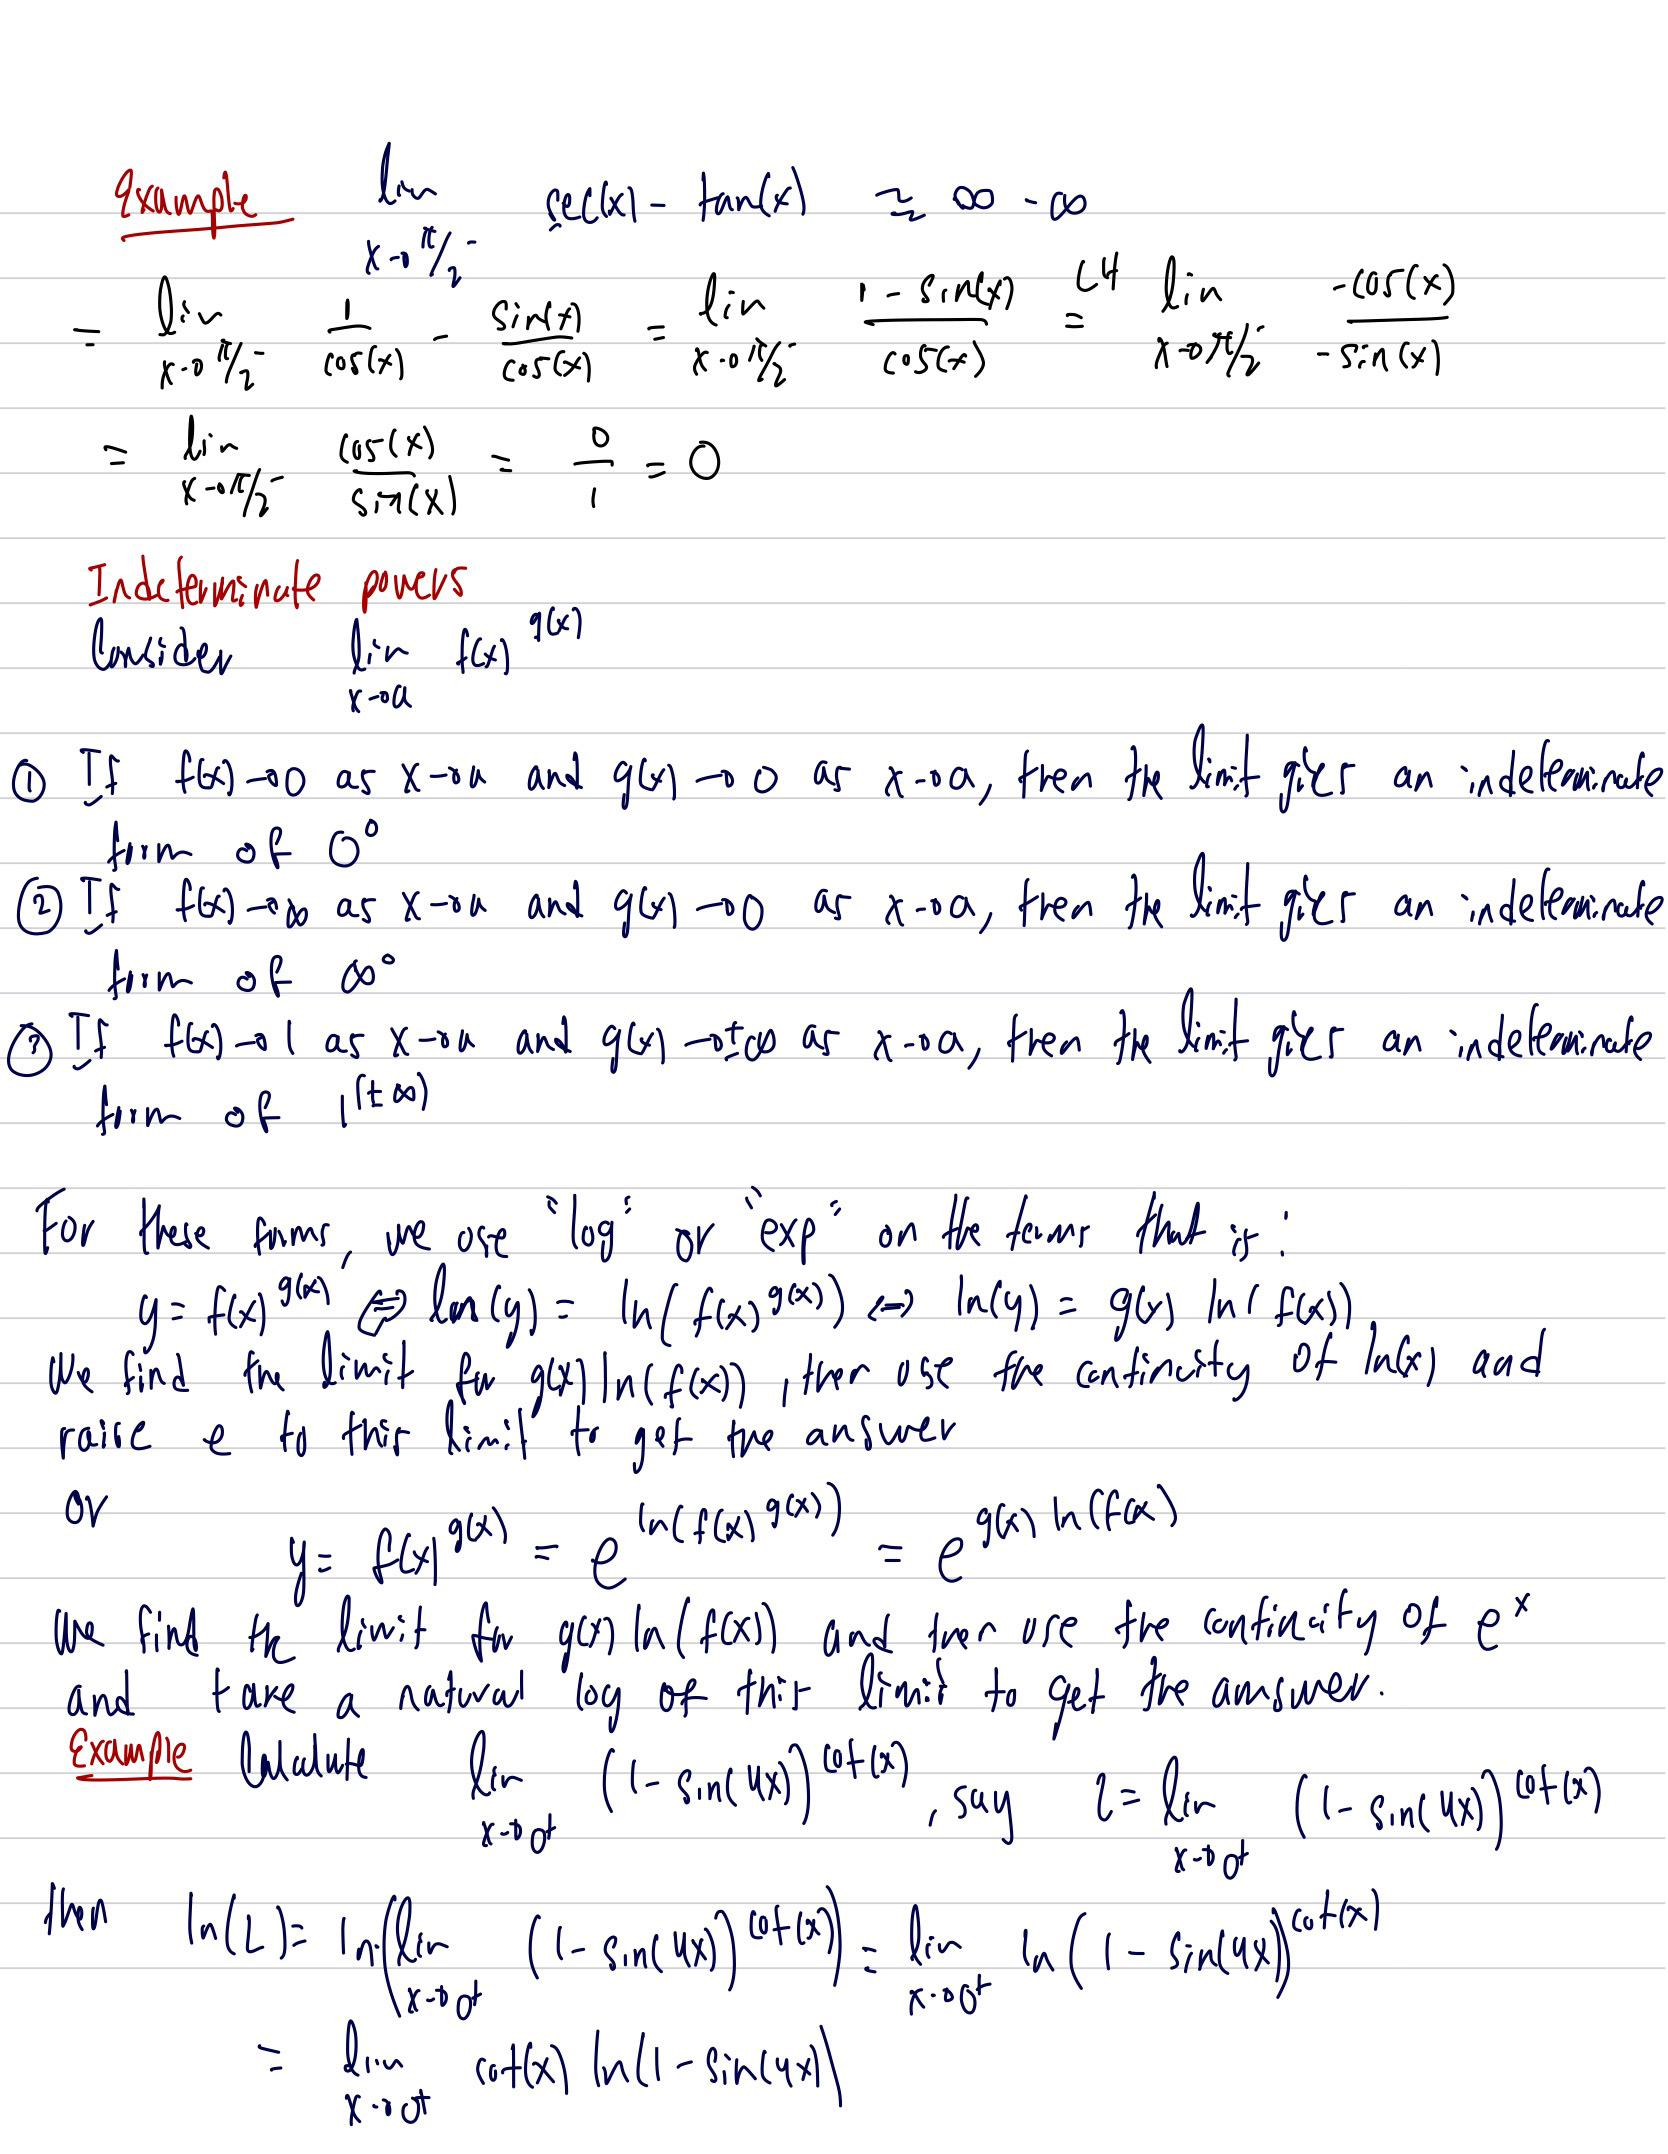 Example lim x→π/2⁻ sec(x) - tan(x) ≈ ∞ - ∞
= lim x→π/2⁻ 1/cos(x) - sin(x)/cos(x) = lim x→π/2⁻ (1 - sin(x))/cos(x) =ᴸᴴ lim x→π/2⁻ -cos(x)/-sin(x)
= lim x→π/2⁻ cos(x)/sin(x) = 0/1 = 0
Indeterminate powers
Consider lim x→a f(x)^g(x)
① If f(x)→0 as x→a and g(x)→0 as x→a, then the limit gives an indeterminate
form of 0⁰
② If f(x)→∞ as x→a and g(x)→0 as x→a, then the limit gives an indeterminate
form of ∞⁰
③ If f(x)→1 as x→a and g(x)→±∞ as x→a, then the limit gives an indeterminate
form of 1^(±∞)
For these forms, we use "log" or "exp" on the terms that is:
y = f(x)^g(x) ⇔ ln(y) = ln(f(x)^g(x)) ⇔ ln(y) = g(x) ln(f(x))
We find the limit for g(x) ln(f(x)), then use the continuity of ln(x) and
raise e to this limit to get the answer
or
y = f(x)^g(x) = e^ln(f(x)^g(x)) = e^g(x) ln(f(x)
We find the limit for g(x) ln(f(x)) and then use the continuity of e^x
and take a natural log of this limit to get the answer.
Example Calculate lim x→0⁺ (1 - sin(4x))^cot(x), say L = lim x→0⁺ (1 - sin(4x))^cot(x)
then ln(L) = ln(lim x→0⁺ (1 - sin(4x))^cot(x)) = lim x→0⁺ ln(1 - sin(4x))^cot(x)
= lim x→0⁺ cot(x) ln(1 - sin(4x))